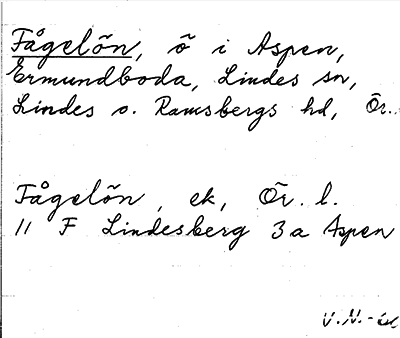 Fågelön, ö i Aspen,
Ermundboda, Lindes sn,
Lindes o. Ramsbergs hd, Ör.
Fågelön, ek, Ör. l.
11 F Lindesberg 3a Aspen
V.N.-